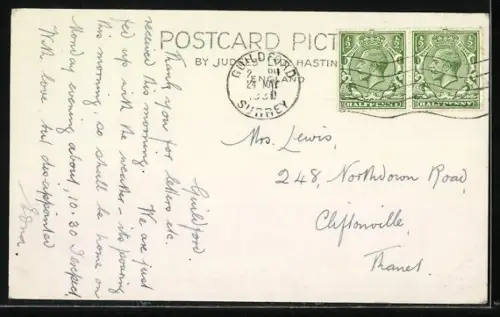 POSTCARD PICT
BY JUDGES LTD HASTIN
ENGLAND
GUILDFORD
SURREY
HALFPENNY
HALFPENNY
Guildford.
Thank you for letters etc.
received this morning. We are just
fed up with the weather – its pouring
this morning, so shall be home on
Monday evening about 10.30 I expect,
With love, but disappointed
Edna.
Mrs. Lewis,
248, Northdown Road,
Cliftonville,
Thanet.